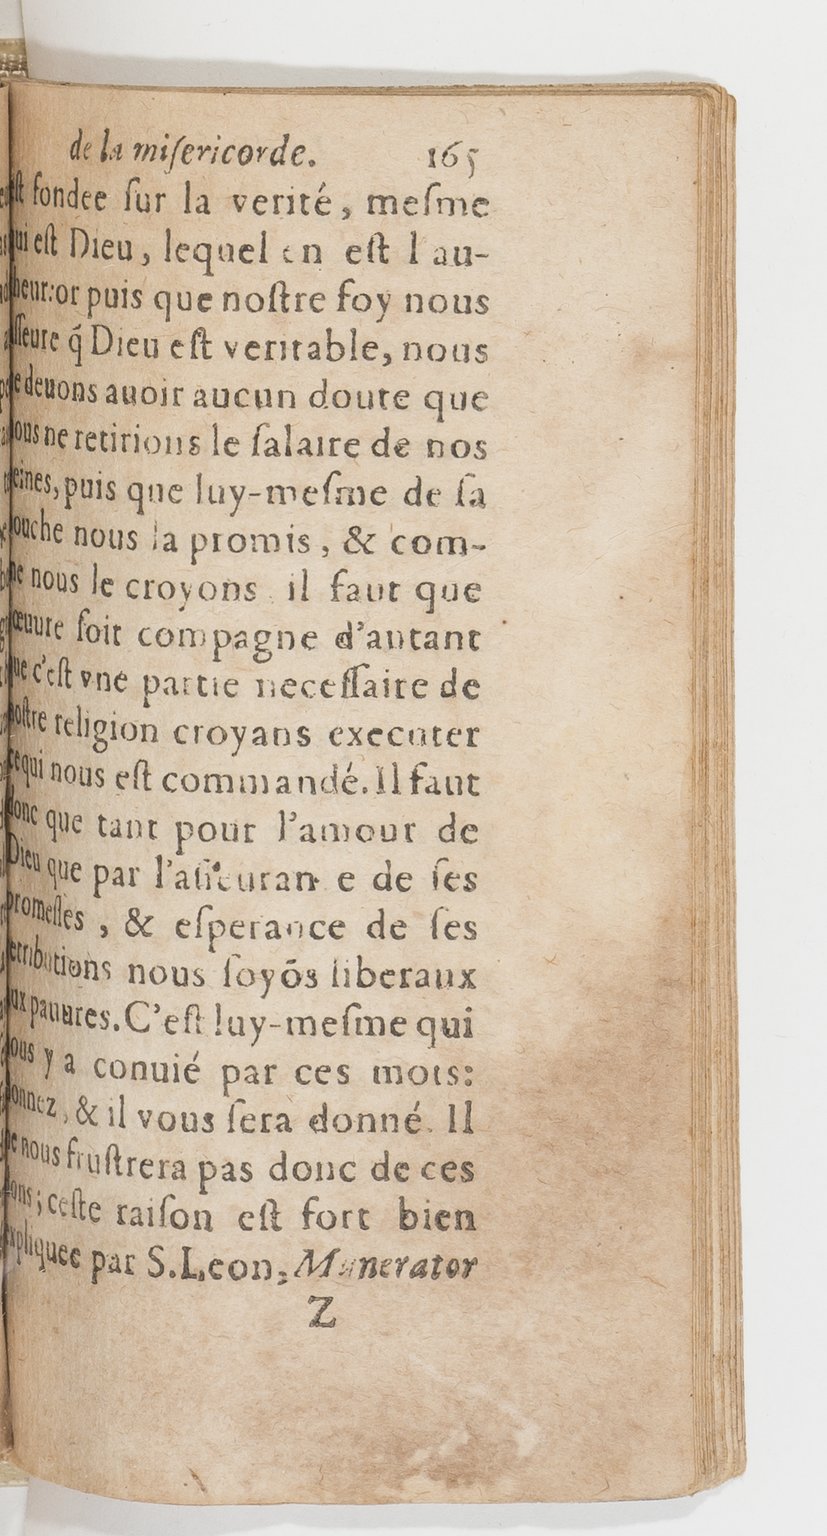 de la miſericorde. 165
eſt fondee ſur la verité, meſme
qui eſt Dieu, lequel en eſt l'au-
theur: or puis que noſtre foy nous
aſſeure q̃ Dieu eſt veritable, nous
ne deuons auoir aucun doute que
nous ne retirions le ſalaire de nos
peines, puis que luy-meſme de ſa
bouche nous la promis, & com-
me nous le croyons il faut que
l'œuure ſoit compagne d'autant
que c'eſt vne partie neceſſaire de
noſtre religion croyans executer
ce qui nous eſt commandé. Il faut
donc que tant pour l'amour de
Dieu que par l'aſſeurance de ſes
promeſſes, & eſperance de ſes
retributions nous ſoyōs liberaux
aux pauures. C'eſt luy-meſme qui
nous y a conuié par ces mots:
donnez, & il vous ſera donné. Il
ne nous fruſtrera pas donc de ces
dons; ceſte raiſon eſt fort bien
expliquee par S. Leon, Munerator
Z